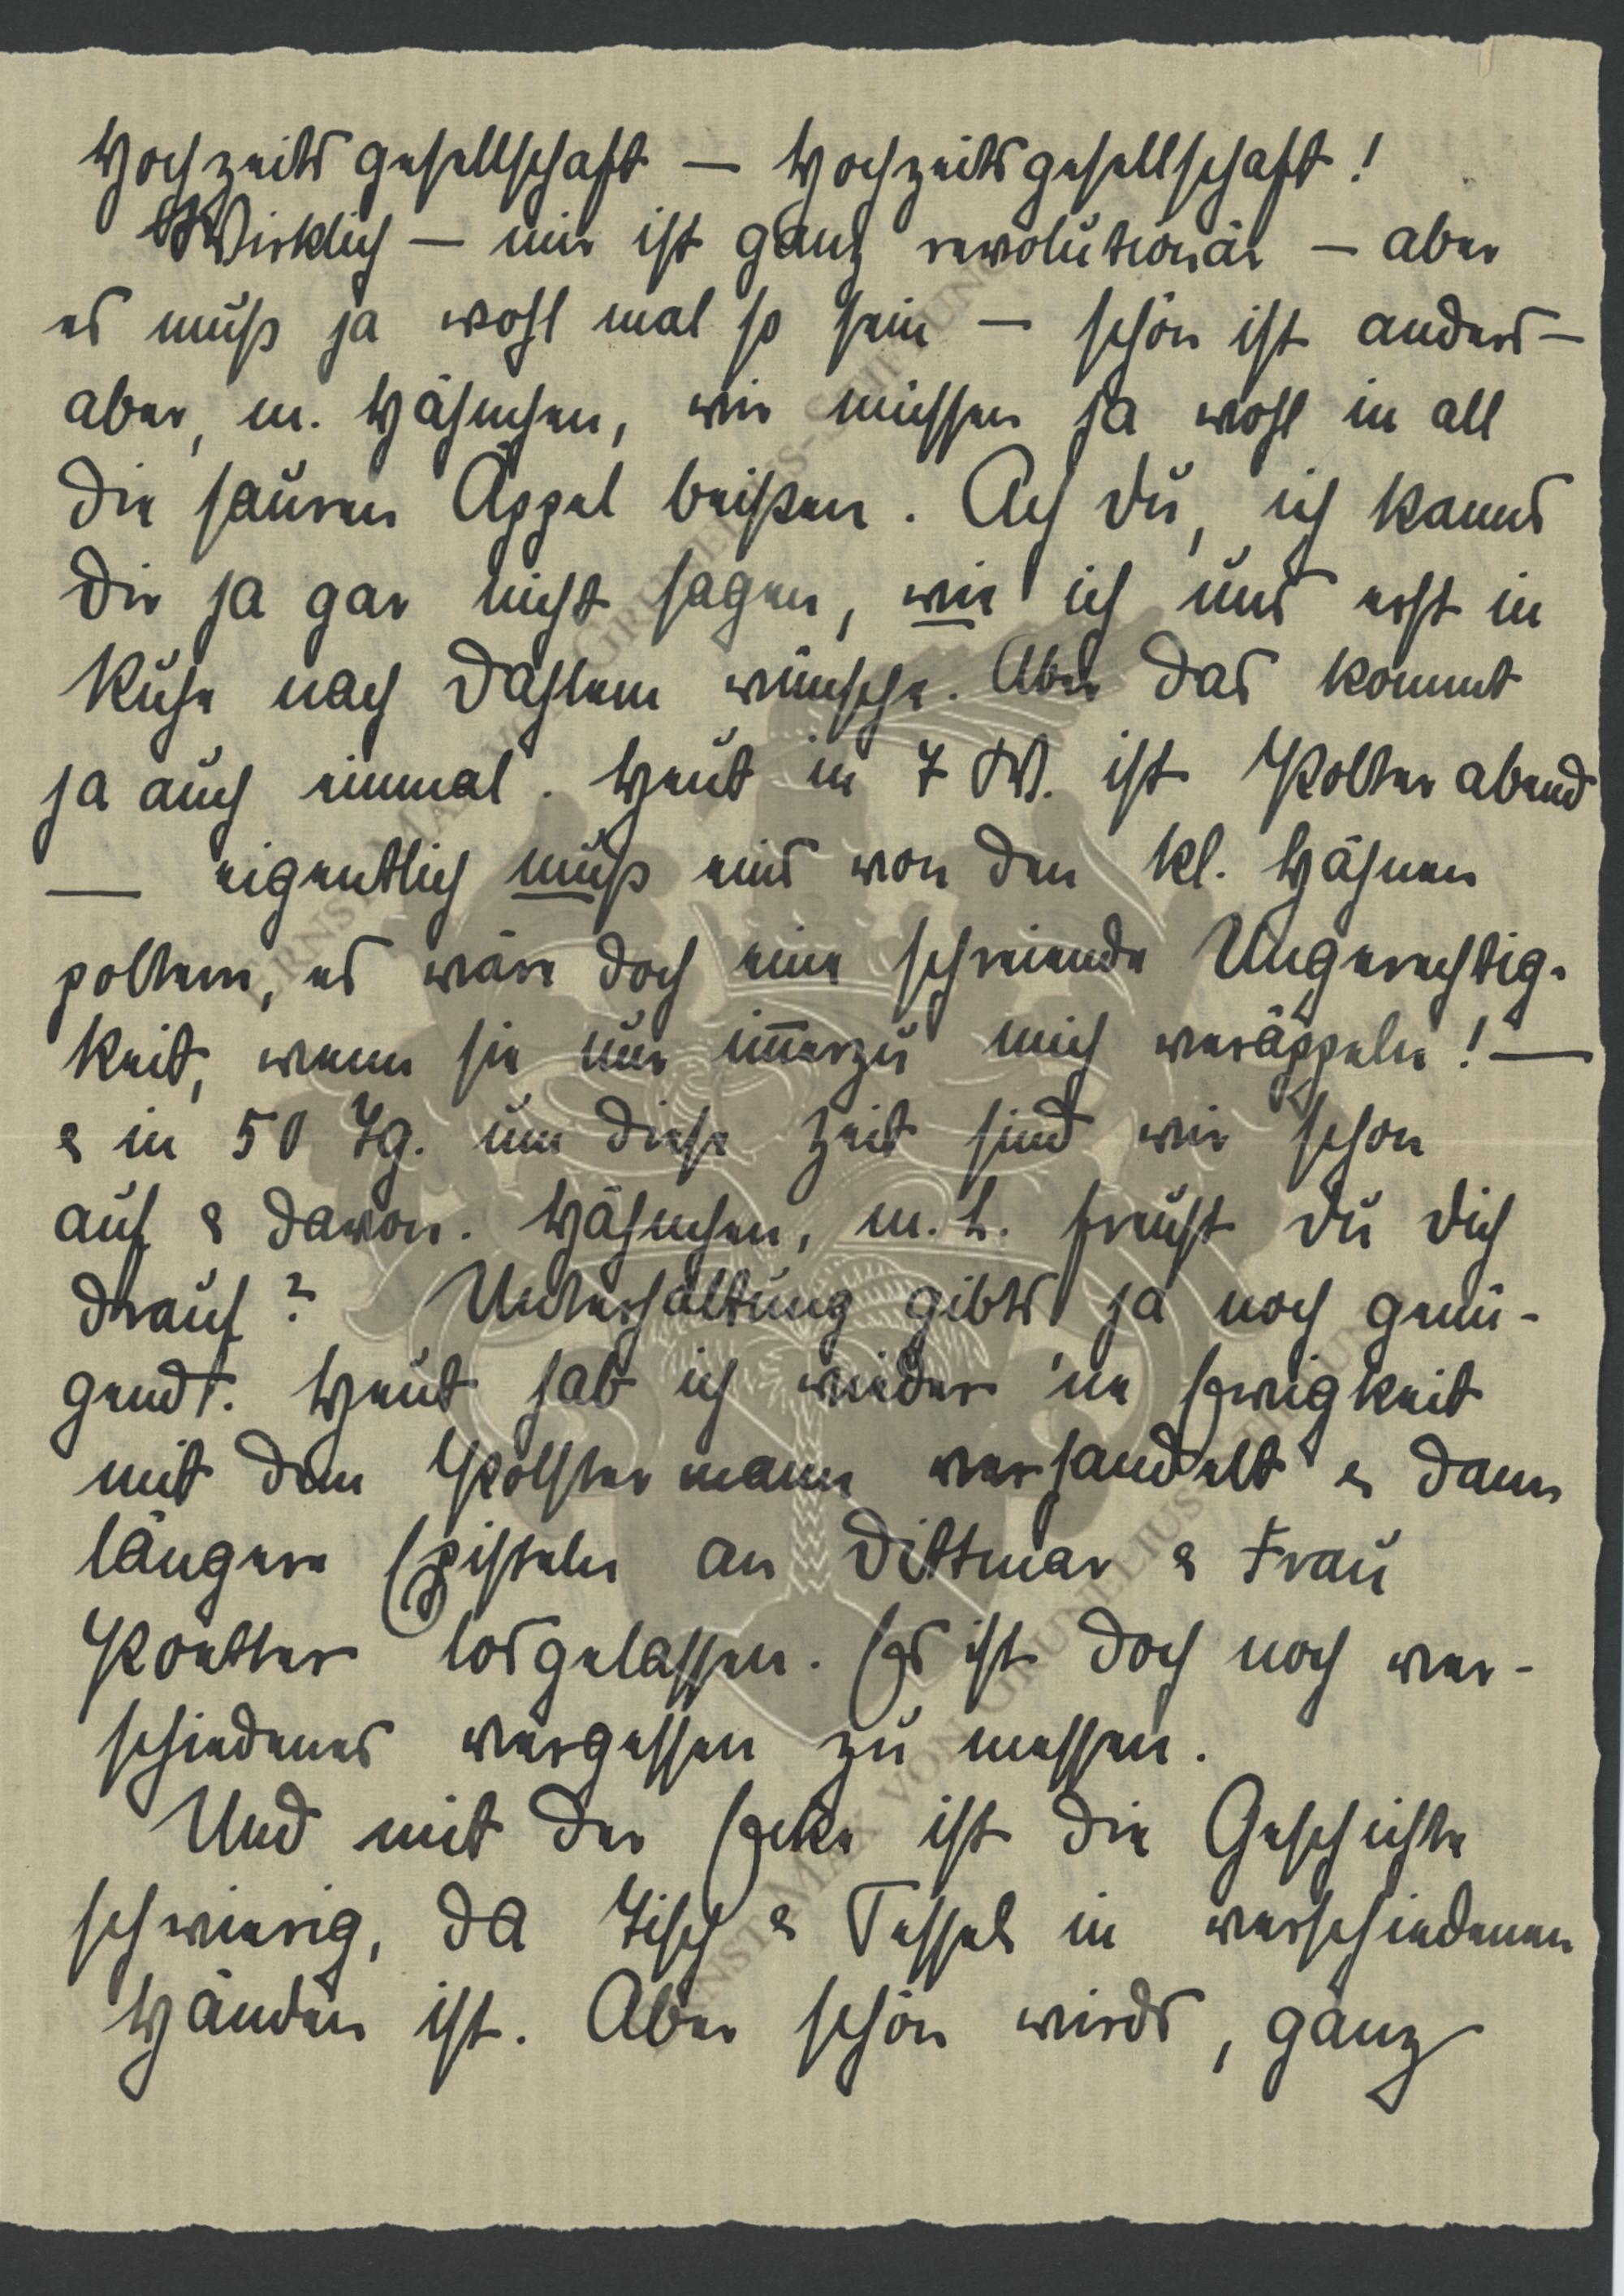 Hochzeitsgesellschaft – Hochzeitsgesellschaft!
Wirklich – mir ist ganz revolutionär – aber
es muß ja wohl mal so sein – schön ist anders –
aber, m. Hähnchen, wir müssen ja wohl in all
die sauren Äppel beißen. Ach Du, ich kanns
Dir ja gar nicht sagen, wie ich uns erst in
Ruhe nach Dahlem wünsche. Aber das kommt
ja auch einmal. Heut in 7 W. ist Polterabend
— eigentlich muß eins von den kl. Hähnen
poltern, es wäre doch eine schreiende Ungerechtig-
keit, wenn sie nur im̅erzu mich veräppeln! —
& in 50 Tg. um diese Zeit sind wir schon
auf & davon. Hähnchen, m. L. freust Du Dich
drauf? Unterhaltung gibts ja noch genü-
gendt. Heut hab ich wieder 'ne Ewigkeit
mit dem Polstermann verhandelt & dann
längere Episteln an Dittmar & Frau
Poetter losgelassen. Es ist doch noch ver-
schiedenes vergessen zu messen.
Und mit der Ecke ist die Geschichte
schwierig, da Tisch & Sessel in verschiedenen
Händen ist. Aber schön wirds, ganz
ERNST MAX VON GRUNELIUS-STIFTUNG
ERNST MAX VON GRUNELIUS-STIFTUNG